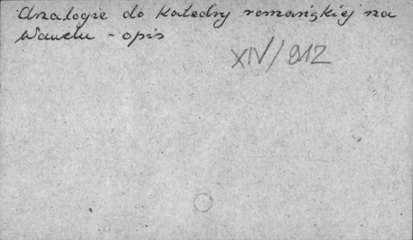 Analogie do katedry romańskiej na
Wawelu - opis
XIV/912